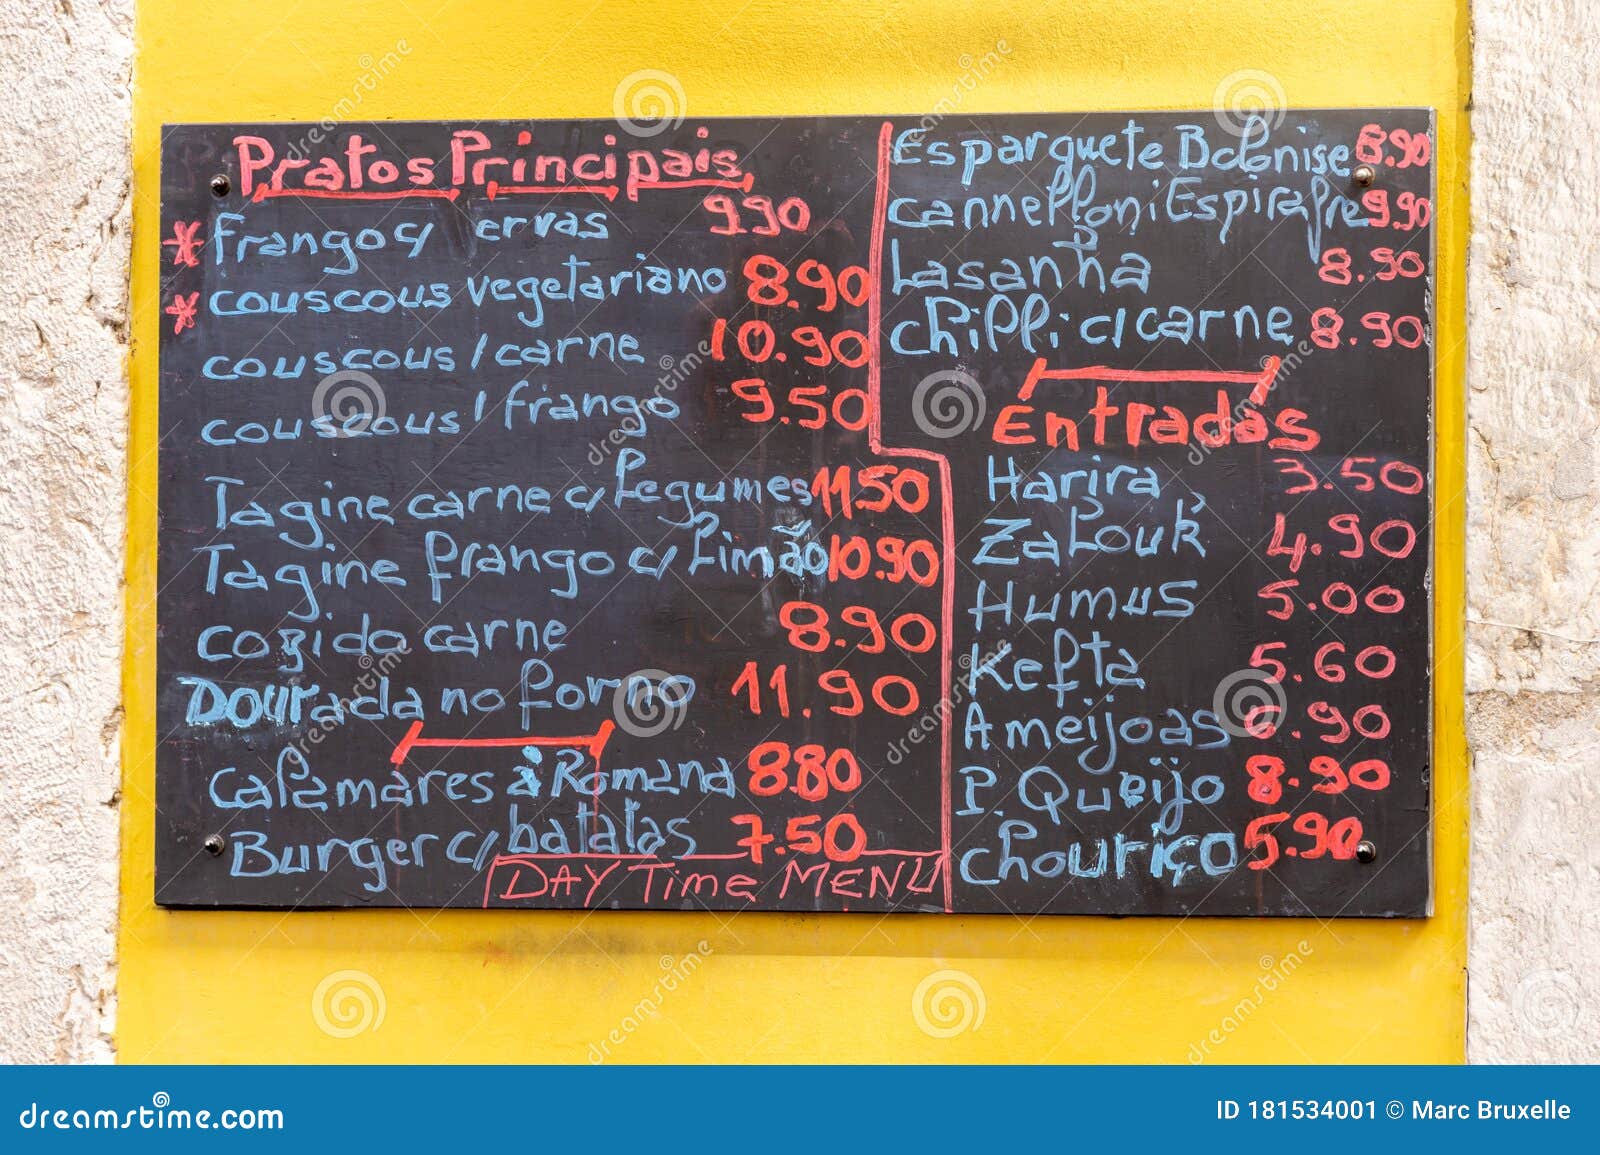 Pratos Principais
* Frango c/ ervas 9.90
* couscous vegetariano 8.90
couscous / carne 10.90
couscous / frango 9.50
Tagine carne c/ Legumes 11.50
Tagine frango c/ Limão 10.90
cozido carne 8.90
Dourada no forno 11.90
calamares à Romana 8.80
Burger c/ batatas 7.50
DAY Time MENU
Esparguete Bolonise 8.90
cannelloni Espinafre 9.90
Lasanha 8.90
chilli c/ carne 8.90
Entradas
Harira 3.50
Zalouk 4.90
Humus 5.00
Kefta 5.60
Ameijoas 6.90
P. Queijo 8.90
chouriço 5.90
dreamstime.com
ID 181534001 © Marc Bruxelle